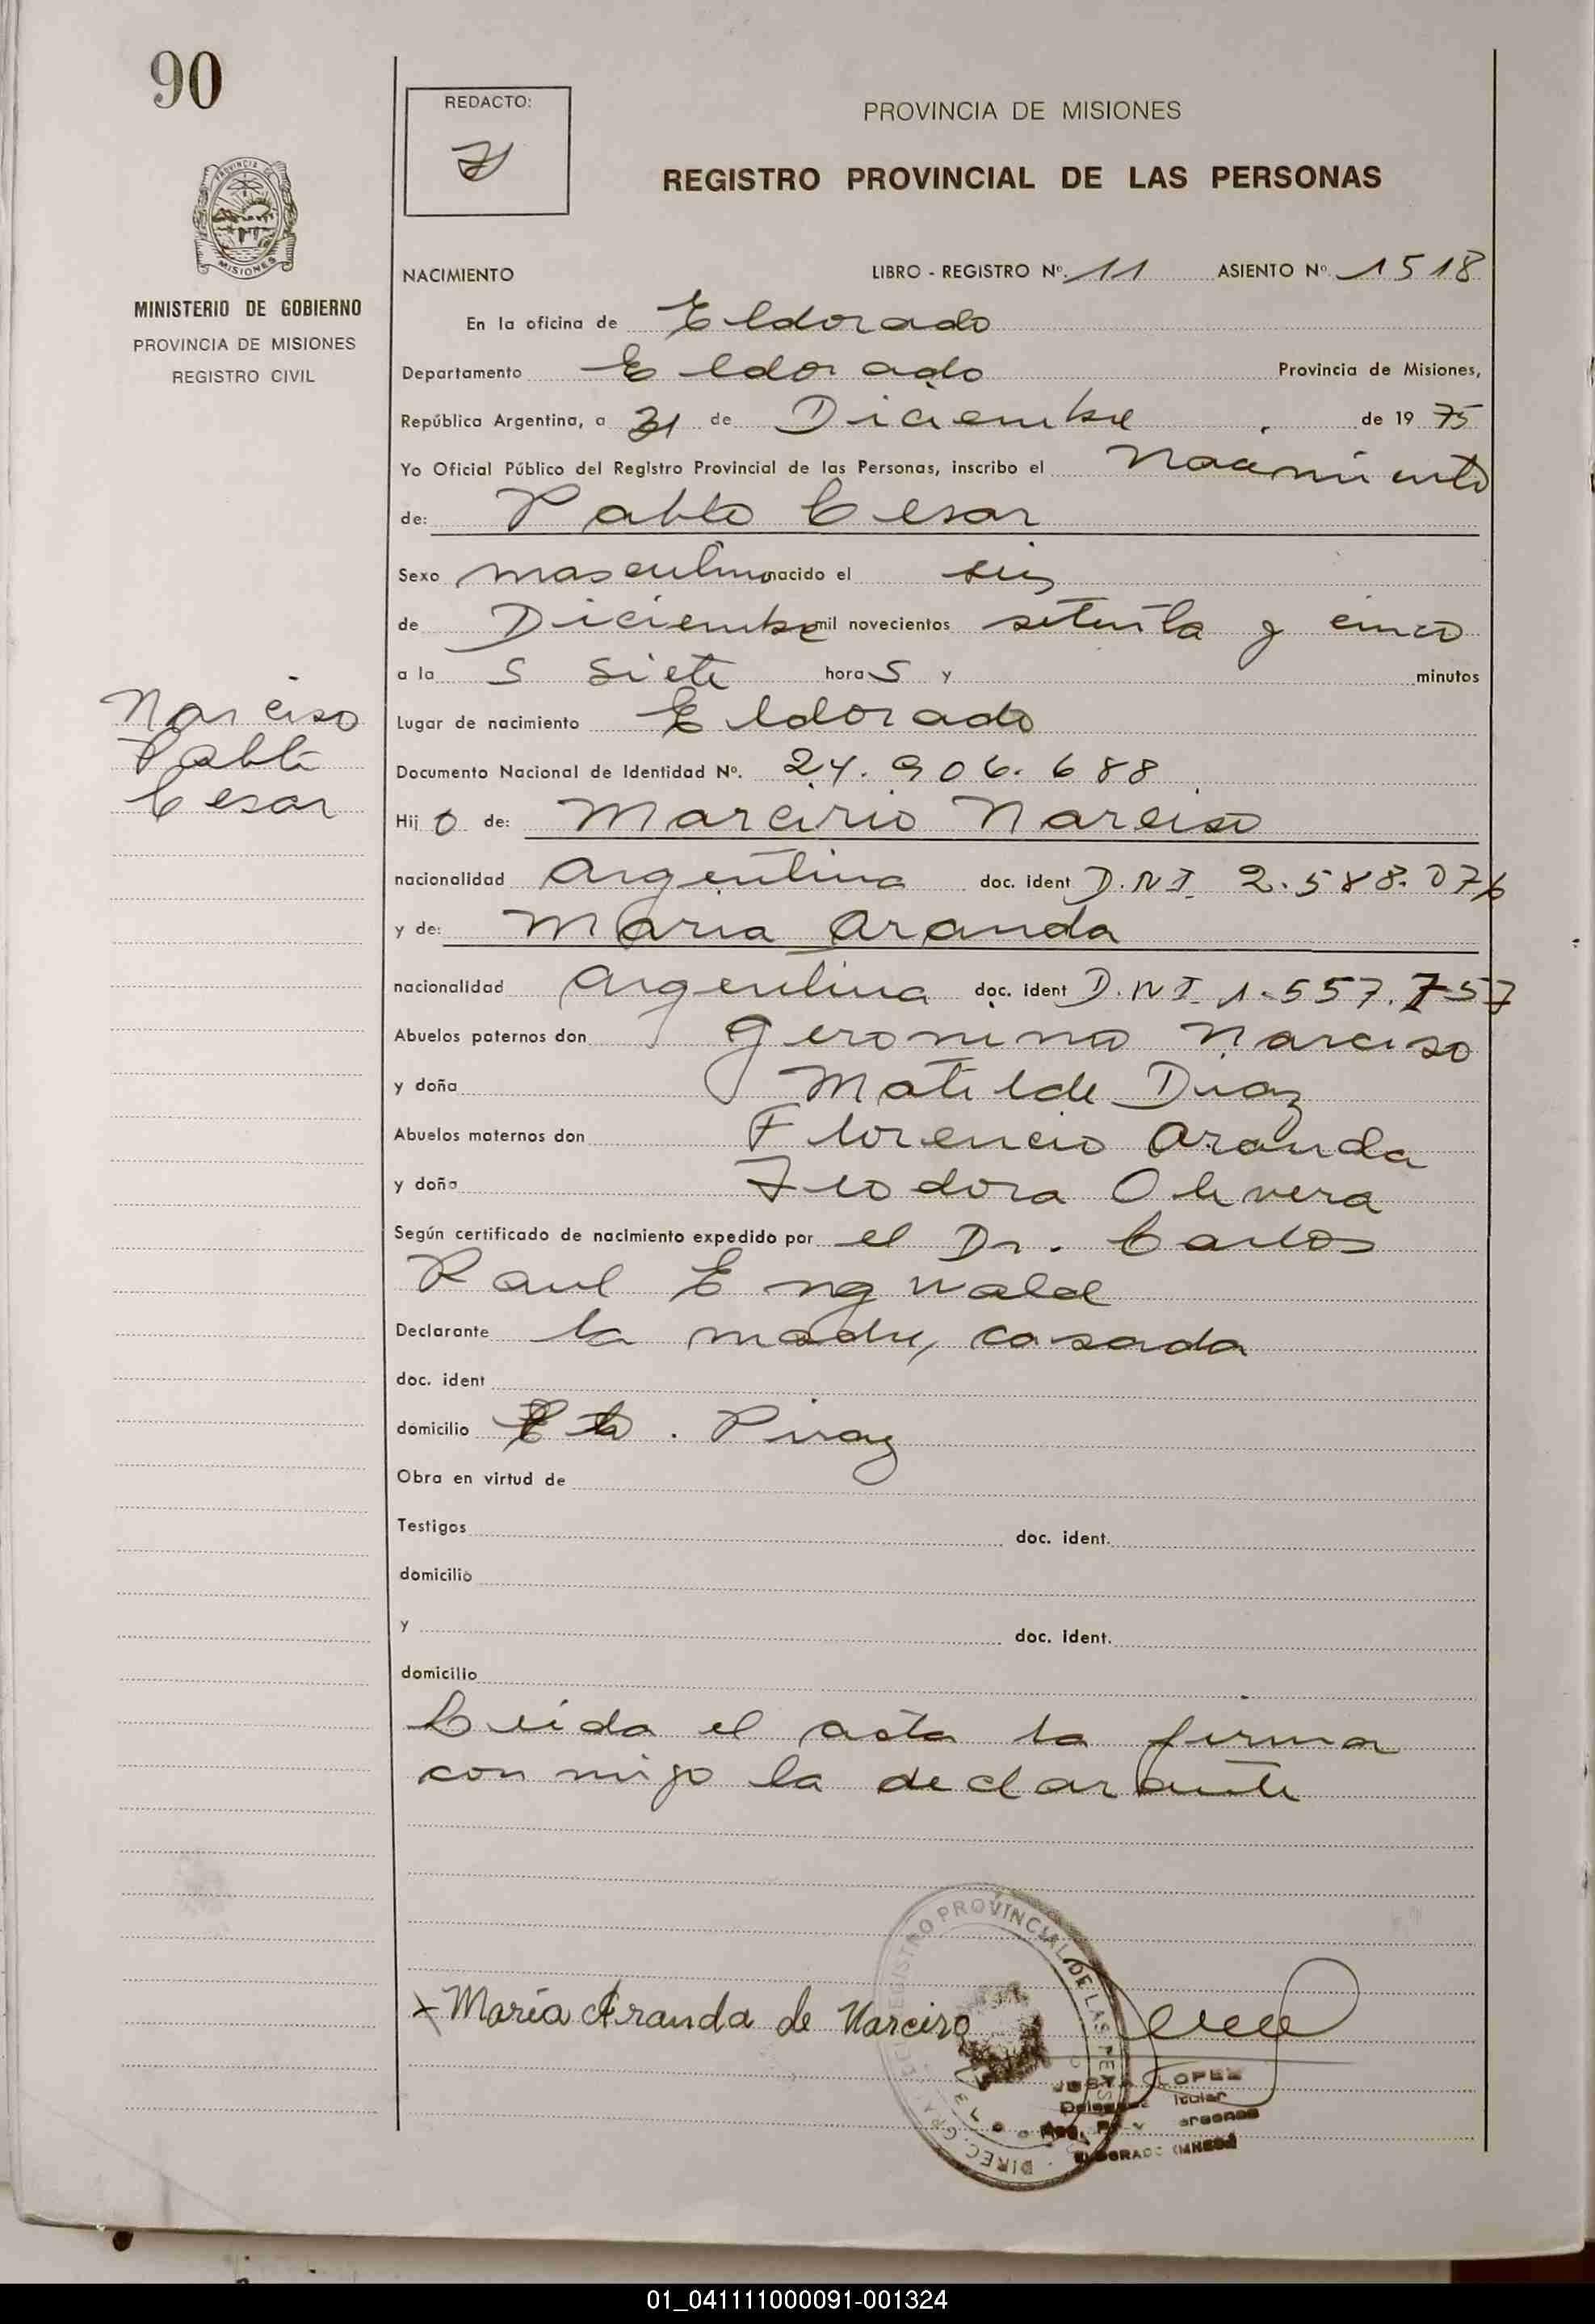 90
REDACTO:
PROVINCIA DE MISIONES
REGISTRO PROVINCIAL DE LAS PERSONAS
PROVINCIA DE
MISIONES
MINISTERIO DE GOBIERNO
PROVINCIA DE MISIONES
REGISTRO CIVIL
NACIMIENTO LIBRO - REGISTRO Nº. 11 ASIENTO Nº. 1518
En la oficina de Eldorado
Departamento Eldorado Provincia de Misiones,
República Argentina, a 31 de Diciembre de 19 75
Yo Oficial Público del Registro Provincial de las Personas, inscribo el Nacimiento
de: Pablo Cesar
Sexo masculino nacido el seis
de Diciembre mil novecientos setenta y cinco
a la s siete hora s y minutos
Narciso
Pablo
Cesar
Lugar de nacimiento Eldorado
Documento Nacional de Identidad Nº. 24.906.688
Hij o de: Marcirio Narciso
nacionalidad Argentina doc. ident D.N.I. 2.588.076
y de: Maria Aranda
nacionalidad Argentina doc. ident D.N.I. 1.557.757
Abuelos paternos don Geronimo Narciso
y doña Matilde Diaz
Abuelos maternos don Florencio Aranda
y doña Teodora Olivera
Según certificado de nacimiento expedido por el Dr. Carlos
Raul Engwald
Declarante la madre, casada
doc. ident
domicilio Pto. Piray
Obra en virtud de
Testigos doc. ident.
domicilio
y doc. ident.
domicilio
Leida el acta la firma
con migo la declarante
x Maria Aranda de Narciso
REGISTRO PROVINCIAL DE LAS PERS
DIREC. GRAL.
JUSTA LOPEZ
ELDORADO (MNES)
01_041111000091-001324